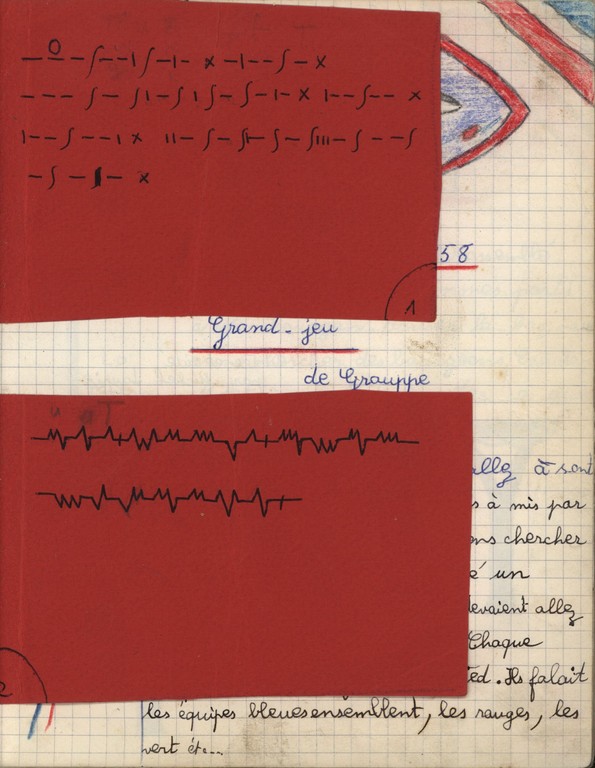 1
58
Grand-jeu
de Grouppe
allez à sont
s à mis par
ons chercher
é un
devaient allez
Chaque
ted. Ils falait
2
les équipes bleues ensemblent, les rouges, les
vert ét...